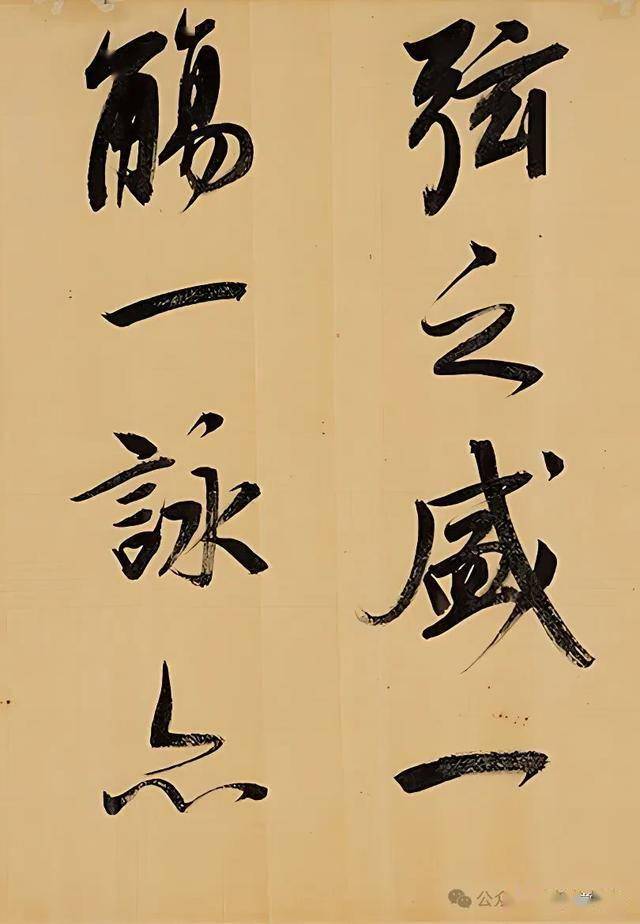 弦之盛一
觴一詠亦
公众